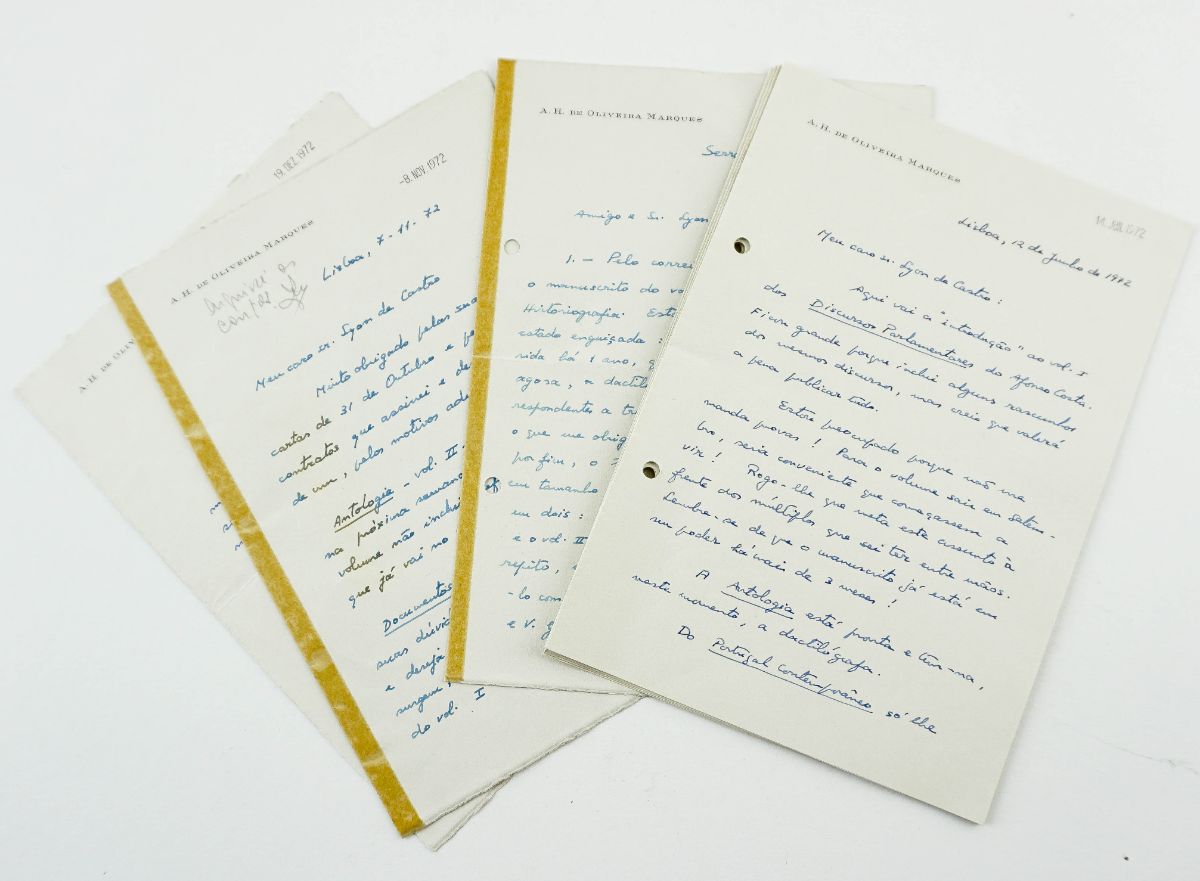 A. H. DE OLIV
19. DEZ. 1972
A. H. DE OLIVEIRA MARQUES
-8. NOV. 1972
Arquivei os
Lisboa, 7-11-72
Meu caro sr. Lyon de Castro
Muito obrigado pelas suas
cartas de 31 de Outubro e
contratos que assinei e de
de um, pelos motivos
Antologia - vol. II.
na próxima semana
volume não inclui
que já vai no
Documentos
suas dúvi
e deseja
surgem,
do vol. I
A. H. DE OLIVEIRA MARQUES
Serr
Amigo e Sr. Lyon
1. - Pelo correi
o manuscrito do vo
Historiografia. Est
estado enguiçada:
rida há 1 ano, q
agora, a dactiló
respondentes a tr
o que me obrig
por fim, o
em tamanho
um dois:
e o vol. II
repito,
-lo com
e V.
A. H. DE OLIVEIRA MARQUES
14. JUN. 1972
Lisboa, 12 de Junho de 1972
Meu caro sr. Lyon de Castro:
Aqui vai a "introdução" ao vol. I
dos Discursos Parlamentares do Afonso Costa.
Ficou grande porque inclui alguns rascunhos
dos mesmos discursos, mas creio que valerá
a pena publicar tudo.
Estou preocupado porque não me
manda provas! Para o volume sair em Setem-
bro, seria conveniente que começassem a
vir! Rogo-lhe que meta este assunto à
frente dos múltiplos que sei ter entre mãos.
Lembre-se de que o manuscrito já está em
seu poder há mais de 3 meses!
A Antologia está pronta e tem-na,
neste momento, a dactilógrafa.
Do Portugal Contemporâneo só lhe